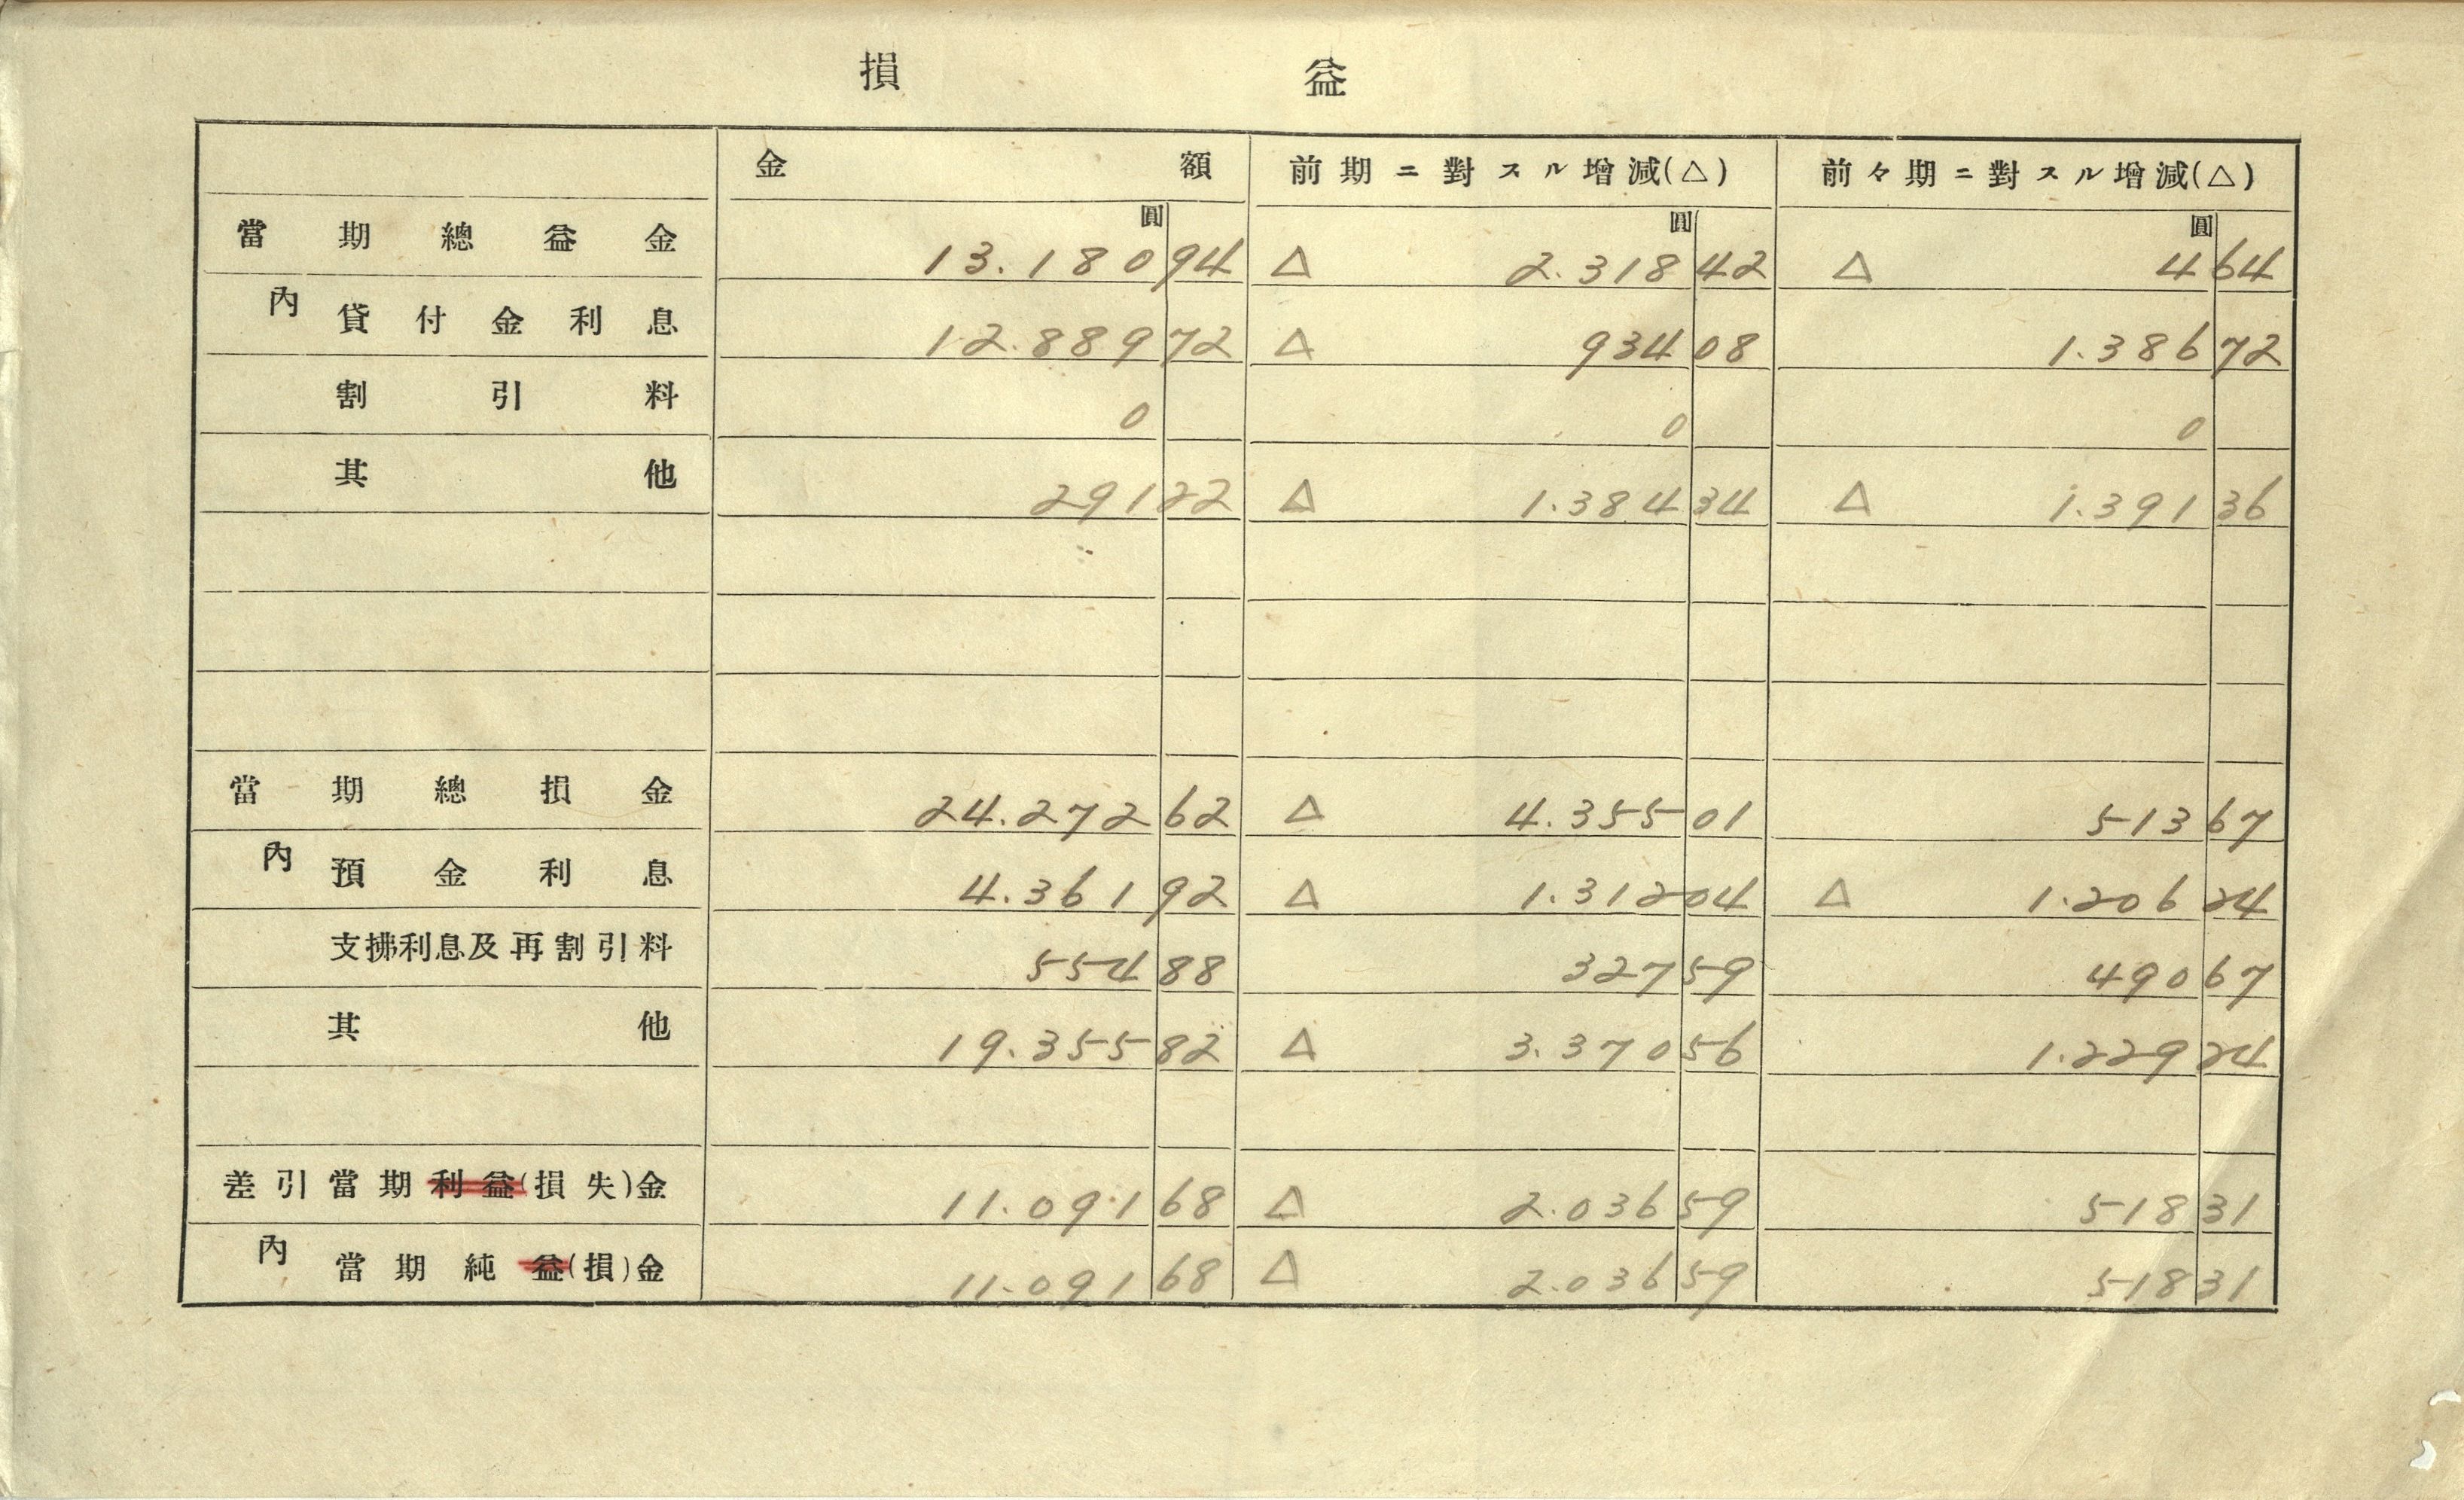 損益
金額 前期ニ對スル增減(△) 前々期ニ對スル增減(△)
圓 圓 圓
當期總益金 13.180 94 △ 2.318 42 △ 4 64
內 貸付金利息 12.889 72 △ 934 08 1.386 72
割引料 0 0 0
其他 291 22 △ 1.384 34 △ 1.391 36
當期總損金 24.272 62 △ 4.355 01 513 67
內 預金利息 4.361 92 △ 1.312 04 △ 1.206 24
支拂利息及再割引料 554 88 327 59 490 67
其他 19.355 82 △ 3.370 56 1.229 24
差引當期利益(損失)金 11.091 68 △ 2.036 59 518 31
內 當期純益(損)金 11.091 68 △ 2.036 59 518 31